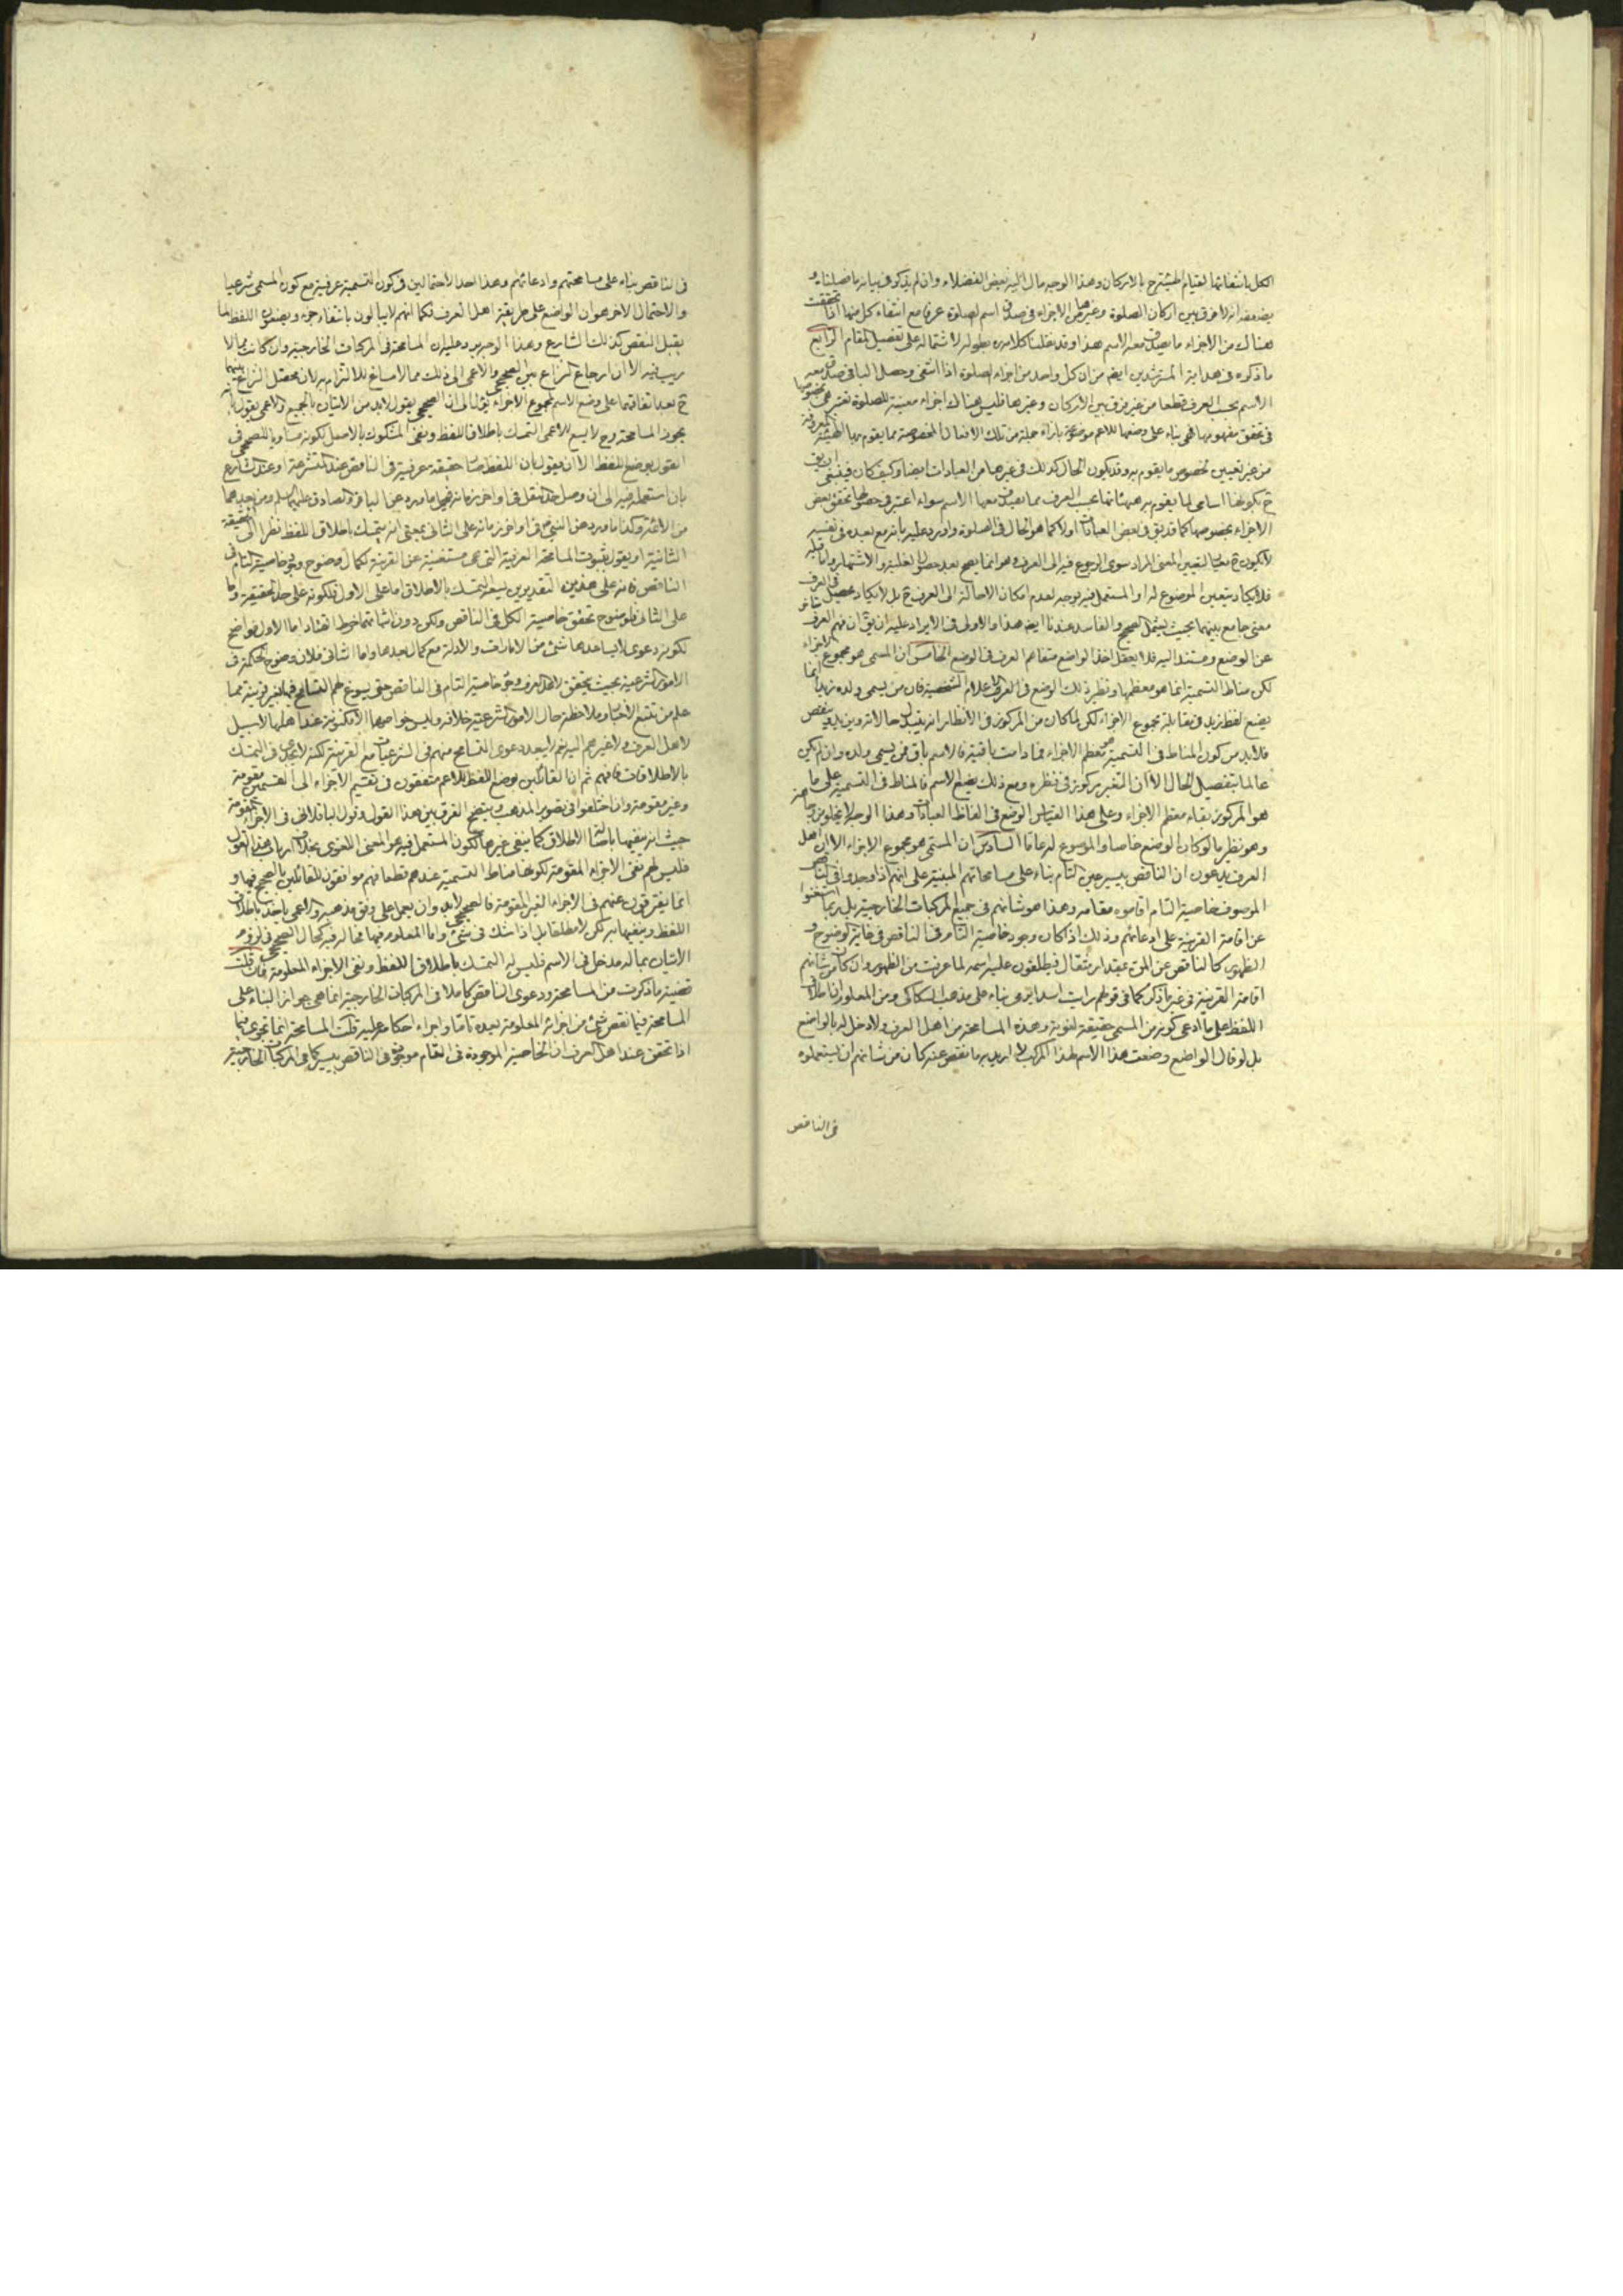 الكل بانتفائها لقيام الهيئة ح بالاركان وهذا الوجه مال اليه بعض الفضلاء وان لم يذكره في بيانه ما فصلناه و
يضعفه انه لا فرق بين اركان الصلوة وغيرها من الاجزاء في صدق اسم الصلوة عرفا مع انتفاء كل منها اذا تحققت
هناك من الاجزاء ما يصدق معه الاسم هذا وقد نقلنا كلامه بطوله لاشتماله على تفصيل المقام الرابع
ما ذكره في هداية المسترشدين ايضا من ان كل واحد من اجزاء الصلوة اذا انتفى وحصل الباقي صدق معه
الاسم بحسب العرف قطعا من غير فرق بين الاركان وغيرها فليس هناك اجزاء معينة للصلوة تعتبر هي بخصوصها
في تحقق مفهومها فهي بناء على وضعها للاعم موضوعة بازاء جملة من تلك الافعال المخصوصة مما يقوم بها الهيئة المعروفة
من غير تعيين لخصوص ما يقوم به وقد يكون الحال كذلك في غيرها من العبادات ايضا وكيف كان فينبغي ان يق
ح بكونها اسامي لما يقوم به هيئاتها بحسب العرف مما يصدق معها الاسم سواء اعتبر في حصولها تحقق بعض
الاجزاء بخصوصها كما قد يق في بعض العبادات اولا كما هو الحال في الصلوة واورد عليه بانه مع بعده في نفسه
لا يكون ح معيار لتعيين المعنى المراد سوى الرجوع فيه الى العرف وهو انما يصح بعد حصول الغلبة والاشتهار واما قبله
فلا يكاد يتعين الموضوع له او المستعمل فيه بوجه لعدم امكان الاحالة الى العرف ح بل لا يكاد يحصل في العرف
معنى جامع بينهما بحيث يشمل الصحيح والفاسد عندنا ايضا هذا والاولى في الايراد عليه ان يق ان فهم العرف متاخر
عن الوضع ومستند اليه فلا يعقل اخذ الواضع متفاهم العرف في الوضع الخامس ان المسمى هو مجموع الاجزاء
لكن مناط التسمية انما هو معظمها ونظير ذلك الوضع في العرف الاعلام الشخصية فان من يسمى ولده زيدا انما
يضع لفظ زيد في مقابلة مجموع الاجزاء لكن لما كان من المركوز في الانظار انه يتبدل حالاته ويزيد وينقص
فلابد من كون المناط في التسمية هو معظم الاجزاء فما دامت باقية فالاسم باق فمن يسمى ولده وان لم يكن
عالما بتفصيل الحال الا ان التغير مركوز في نظره ومع ذلك يضع الاسم فالمناط في التسمية على ما
هو المركوز بقاء معظم الاجزاء وعلى هذا القياس الوضع في الفاظ العبادات وهذا الوجه لا يخلو من
وهو نظير ما لو كان الوضع خاصا والموضوع له عاما السادس ان المسمى هو مجموع الاجزاء الا ان اهل
العرف يدعون ان الناقص يصير عين التام بناء على مسامحاتهم المبنية على انهم اذا وجدوا في الناقص
الموصوف خاصية التام اقاموه مقامه وهذا هو شانهم في جميع المركبات الخارجية بل ربما استغنوا
عن اقامة القرينة على ادعائهم وذلك اذا كان وجود خاصية التام في الناقص في غاية الوضوح و
الظهور كالناقص عن المن بمقدار مثقال فيطلقون عليه اسمه لما عرفت من الظهور وان كان من شانهم
اقامة القرينة في غير ما ذكر كما في قولهم رايت اسدا يرمي بناء على مذهب السكاكي ومن المعلوم ان اطلاق
اللفظ على ما ادعى كونه من المسمى حقيقة لغوية وهذه المسامحة من اهل العرف ولا دخل له بالواضع
بل لو قال الواضع وضعت هذا الاسم لهذا المركب لا ازيد به ما نقص عنه كان من شانهم ان يستعملوه
في الناقص
في الناقص بناء على مسامحتهم وادعائهم وهذا احد الاحتمالين في كون التسمية عرفية مع كون المسمى شرعيا
والاحتمال الاخر هو ان الواضع على طريقة اهل العرف فكما انهم لا يبالون بانتفاء جزء ويضعون اللفظ لما
يقبل النقص كذلك الشارع وهذا الوجه يرد عليه ان المسامحة في المركبات الخارجية وان كانت مما لا
ريب فيه الا ان ارجاع النزاع بين الصحيحي والاعمى الى ذلك مما لا مساغ للالتزام به لان محصل النزاع بينهما
ح بعد اتفاقهما على وضع الاسم لمجموع الاجزاء يؤل الى ان الصحيحي يقول لابد من الاتيان بالجميع والاعمى يقول بانه
يجوز المسامحة وح لا يسع للاعمى التمسك باطلاق اللفظ ونفي المشكوك بالاصل لكونه مساويا للصحيحي في
القول بوضع اللفظ الا ان يقول بان اللفظ صار حقيقة عرفية في الناقص عند المتشرعة او عند الشارع
بان استعمله فيه الى ان وصل حد النقل في اواخر زمانه فيحمل ما ورد عن الباقر والصادق عليهما السلم ومن بعدهما
من الائمة وكذا ما ورد عن النبي ص في اواخر زمانه على الثاني بمعنى انه يتمسك باطلاق اللفظ نظرا الى الحقيقة
الثانية او يقول بثبوت المسامحة العرفية التي هي مستغنية عن القرينة لكمال وضوح وجود خاصية التام في
الناقص فانه على هذين التقديرين يسعه التمسك بالاطلاق اما على الاول فلكونه على حد الحقيقة واما
على الثاني فلوضوح تحقق خاصية الكل في الناقص ولكن دون اثباتهما خرط القتاد اما الاول فواضح
لكونه دعوى لا يساعدها شئ من الامارات والادلة مع كمال بعدها واما الثاني فلان وضوح الحكم في
الامور الشرعية بحيث يتحقق لاهل العرف وجود خاصية التام في الناقص حتى يسوغ لهم التسامح فيها بغير قرينة مما
علم من تتبع الاخبار وملاحظة حال الامور الشرعية خلافه وليس خواصها الا مكنونة عند اهلها لا سبيل
لاهل العرف ولا غيرهم اليه نعم لا يبعد دعوى التسامح منهم في الشرعيات مع القرينة لكنه لا يجدي في التمسك
بالاطلاقات فافهم ثم ان القائلين بوضع اللفظ للاعم متفقون في تقسيم الاجزاء الى القسمين مقومة
وغير مقومة وان اختلفوا في تصوير المذهب ويتضح الفرق بين هذا القول وقول الباقلاني في الاجزاء المقومة
حيث انه ينفيها باصالة الاطلاق كما ينفي غيرها لكون المستعمل فيه هو المعنى اللغوي بخلاف ارباب هذا القول
فليس لهم نفي الاجزاء المقومة لكونها مناط التسمية عندهم قطعا فهم موافقون للقائلين بالصحيح فيها و
انما يفترقون عنهم في الاجزاء الغير المقومة فالصحيحي لابد وان يعمل على وفق مذهبه والاعمى ياخذ باطلاق
اللفظ وينفيها به لكن لا مطلقا بل اذا شك في شئ واما المعلوم فيها فحاله فيه كحال الصحيحي في لزوم
الاتيان بما له مدخل في الاسم فليس له التمسك باطلاق اللفظ ونفي الاجزاء المعلومة فان قلت
قضية ما ذكرت من المسامحة ودعوى الناقص كاملا في المركبات الخارجية انما هي جواز البناء على
المسامحة فيما نقص شئ من اجزائه المعلومة بعده تاما واجراء احكامه عليه قلت المسامحة انما تجري فيما
اذا تحقق عند اهل العرف ان الخاصية الموجودة في التام موجودة في الناقص بيسير كما في المركبات الخارجية